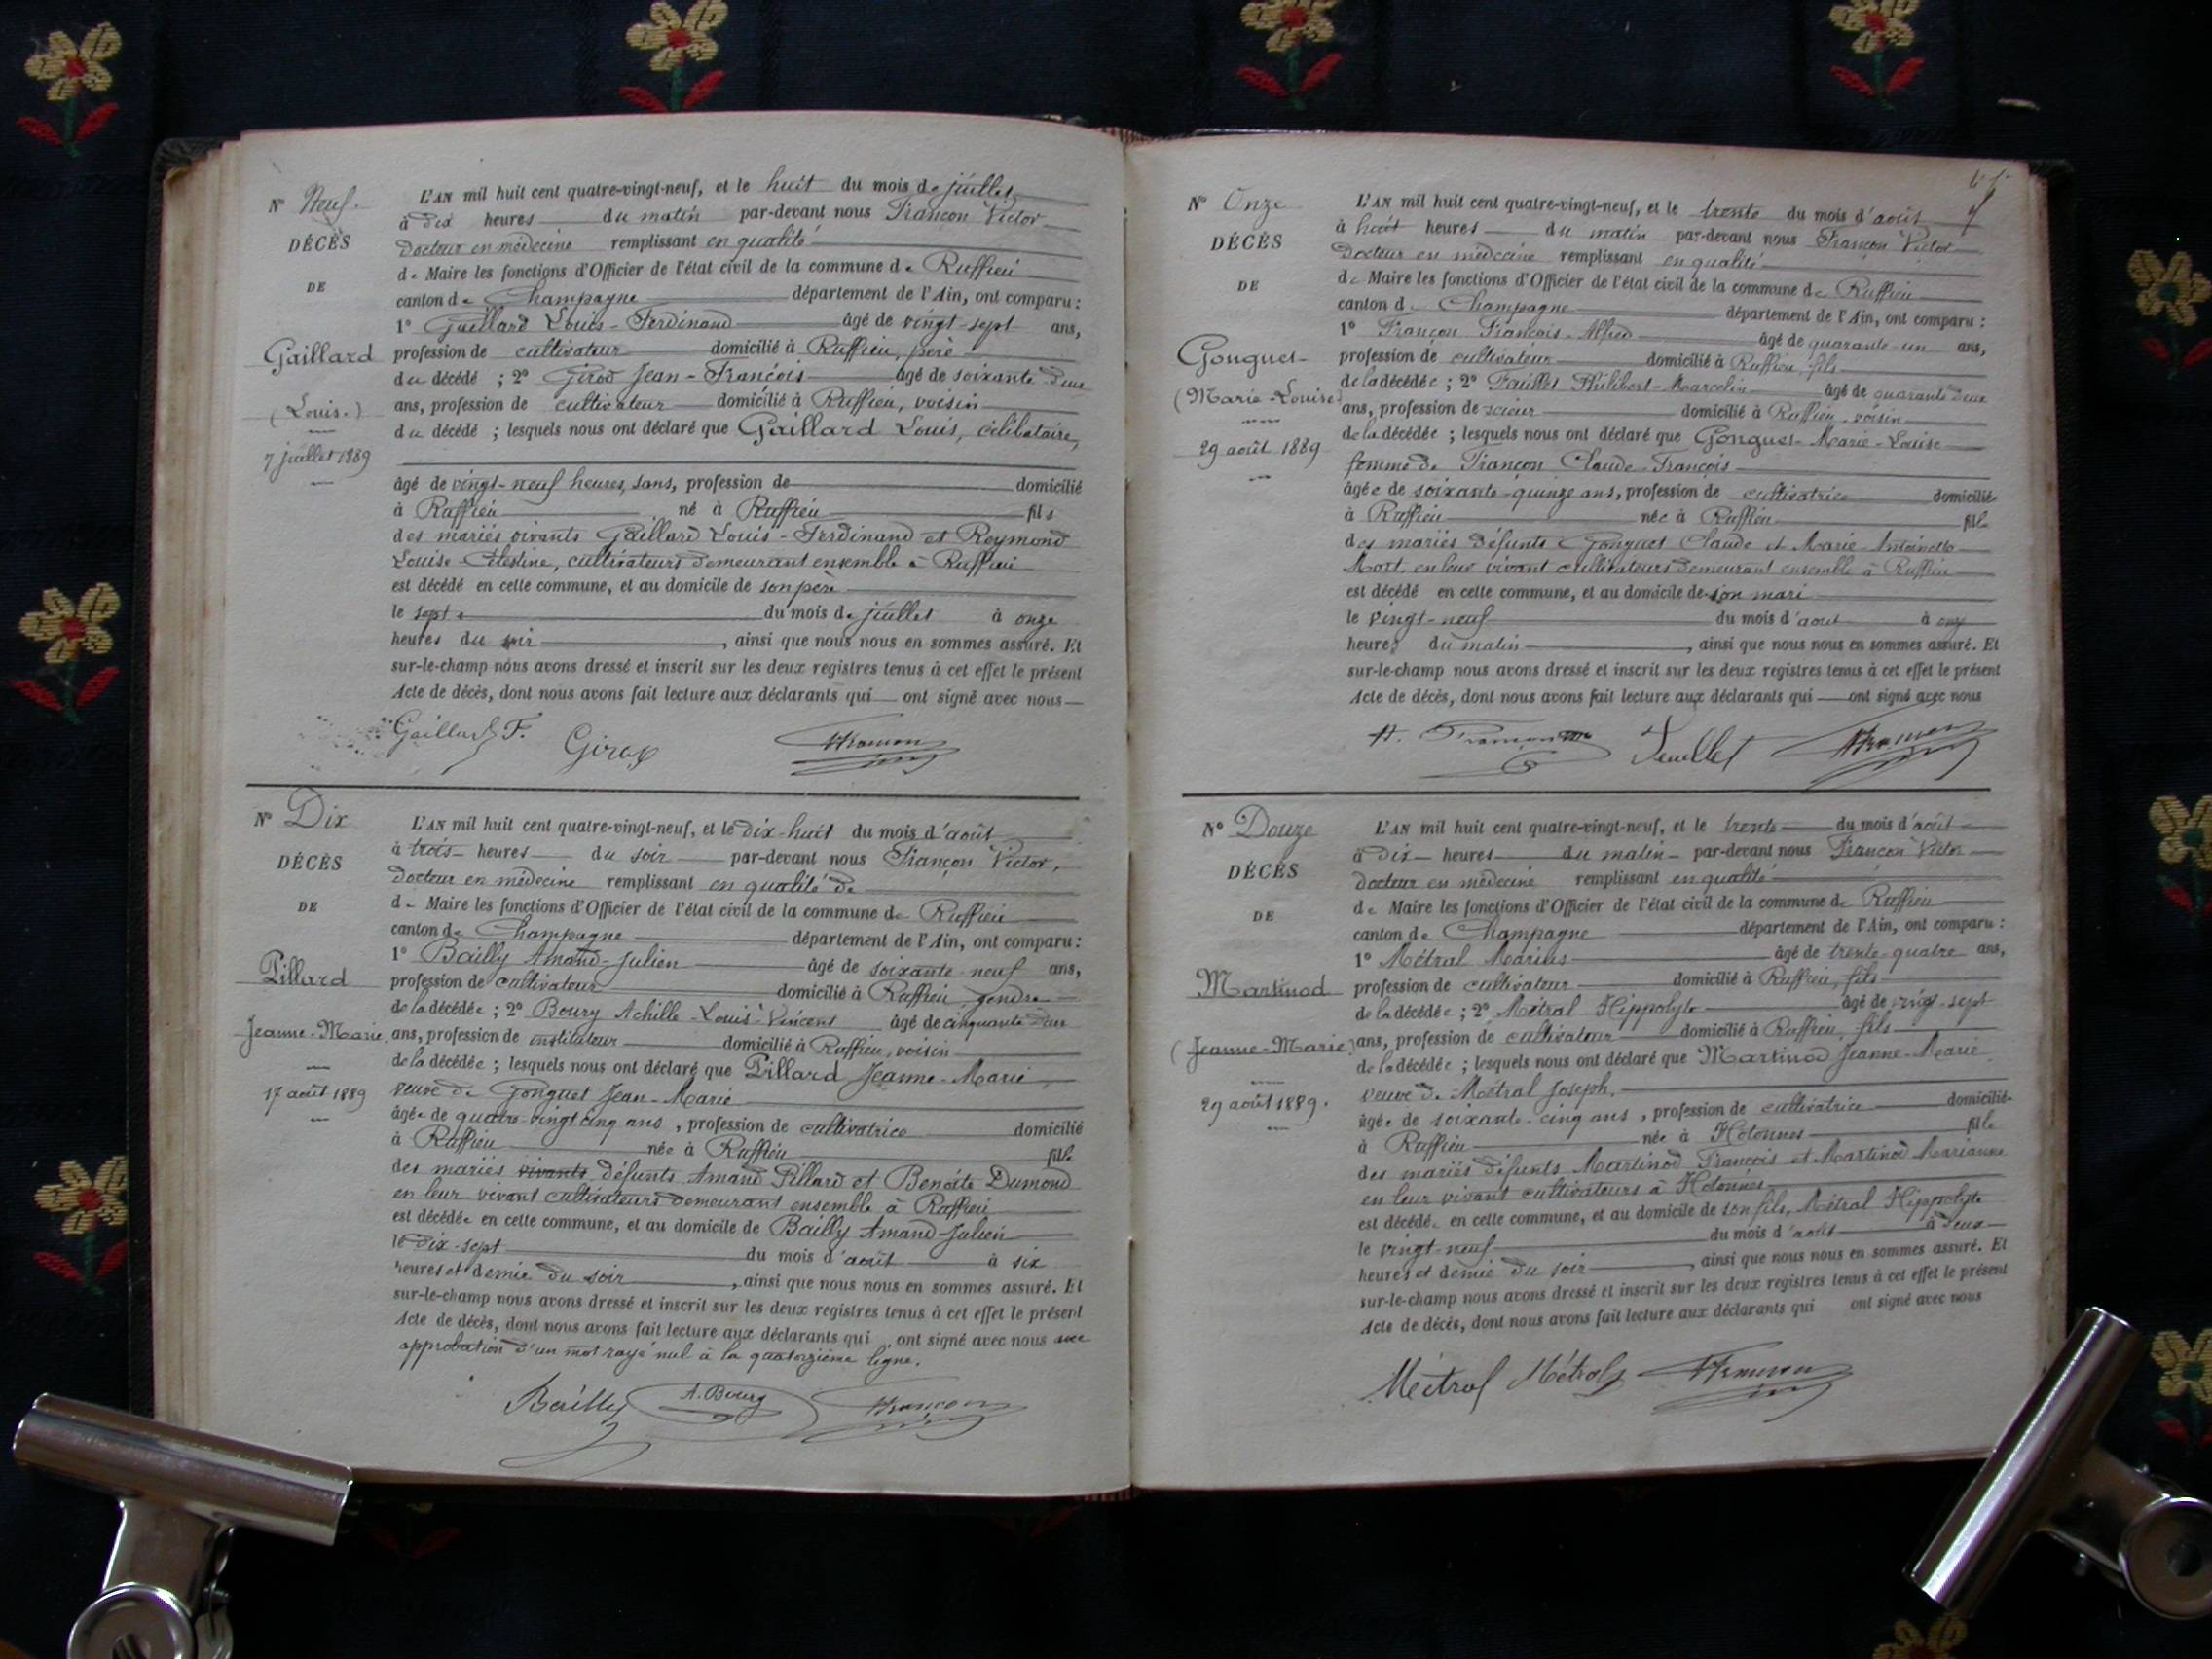 N° Neuf.
DÉCÈS
DE
Gaillard
(Louis.)
7 juillet 1889
L'AN mil huit cent quatre-vingt-neuf, et le huit du mois de juillet
à dix heures du matin par-devant nous Françon Victor
docteur en médecine remplissant en qualité
de Maire les fonctions d'Officier de l'état civil de la commune de Ruffieu
canton de Champagne département de l'Ain, ont comparu :
1° Gaillard Louis-Ferdinand âgé de vingt-sept ans,
profession de cultivateur domicilié à Ruffieu, père
du décédé ; 2° Girod Jean-François âgé de soixante deux
ans, profession de cultivateur domicilié à Ruffieu, voisin
du décédé ; lesquels nous ont déclaré que Gaillard Louis, célibataire,
âgé de vingt-neuf heures, sans, profession de domicilié
à Ruffieu né à Ruffieu fils
des mariés vivants Gaillard Louis-Ferdinand et Reymond
Louise-Célestine, cultivateurs demeurant ensemble à Ruffieu
est décédé en cette commune, et au domicile de son père
le sept du mois de juillet à onze
heures du soir, ainsi que nous nous en sommes assuré. Et
sur-le-champ nous avons dressé et inscrit sur les deux registres tenus à cet effet le présent
Acte de décès, dont nous avons fait lecture aux déclarants qui ont signé avec nous
Gaillard F. Girod VFrançon
N° Dix
DÉCÈS
DE
Pillard
Jeanne-Marie
17 août 1889
L'AN mil huit cent quatre-vingt-neuf, et le dix-huit du mois d'août
à trois heures du soir par-devant nous Françon Victor,
docteur en médecine remplissant en qualité de
de Maire les fonctions d'Officier de l'état civil de la commune de Ruffieu
canton de Champagne département de l'Ain, ont comparu :
1° Bailly Amand-Julien âgé de soixante-neuf ans,
profession de cultivateur domicilié à Ruffieu, gendre
de la décédée ; 2° Boury Achille-Louis-Vincent âgé de cinquante deux
ans, profession de instituteur domicilié à Ruffieu, voisin
de la décédée ; lesquels nous ont déclaré que Pillard Jeanne-Marie
veuve de Gonguet Jean-Marie
âgée de quatre-vingt cinq ans, profession de cultivatrice domicilié
à Ruffieu née à Ruffieu fille
des mariés vivants défunts Amand Pillard et Benoite Dumond
en leur vivant cultivateurs demeurant ensemble à Ruffieu
est décédée en cette commune, et au domicile de Bailly Amand-Julien
le dix-sept du mois d'août à six
heures et demie du soir, ainsi que nous nous en sommes assuré. Et
sur-le-champ nous avons dressé et inscrit sur les deux registres tenus à cet effet le présent
Acte de décès, dont nous avons fait lecture aux déclarants qui ont signé avec nous avec
approbation d'un mot rayé nul à la quatorzième ligne.
Bailly A. Boury VFrançon
N° Onze
DÉCÈS
DE
Gonguet
(Marie-Louise)
29 août 1889
L'AN mil huit cent quatre-vingt-neuf, et le trente du mois d'août
à huit heures du matin par-devant nous Françon Victor
docteur en médecine remplissant en qualité
de Maire les fonctions d'Officier de l'état civil de la commune de Ruffieu
canton de Champagne département de l'Ain, ont comparu :
1° Françon François-Alfred âgé de quarante-un ans,
profession de cultivateur domicilié à Ruffieu, fils
de la décédée ; 2° Philibert-Marcelin âgé de quarante deux
ans, profession de scieur domicilié à Ruffieu, voisin
de la décédée ; lesquels nous ont déclaré que Gonguet Marie-Louise
femme de Françon Claude-François
âgée de soixante-quinze ans, profession de cultivatrice domiciliée
à Ruffieu née à Ruffieu fille
des mariés défunts Gonguet Claude et Marie-Antoinette
Mort, en leur vivant cultivateurs demeurant ensemble à Ruffieu
est décédé en cette commune, et au domicile de son mari
le vingt-neuf du mois d'août à onze
heures du matin, ainsi que nous nous en sommes assuré. Et
sur-le-champ nous avons dressé et inscrit sur les deux registres tenus à cet effet le présent
Acte de décès, dont nous avons fait lecture aux déclarants qui ont signé avec nous
A. Françon VFrançon
N° Douze
DÉCÈS
DE
Martinod
(Jeanne-Marie)
29 août 1889.
L'AN mil huit cent quatre-vingt-neuf, et le trente du mois d'août
à dix heures du matin par-devant nous Françon Victor
docteur en médecine remplissant en qualité
de Maire les fonctions d'Officier de l'état civil de la commune de Ruffieu
canton de Champagne département de l'Ain, ont comparu :
1° Métral Marius âgé de trente-quatre ans,
profession de cultivateur domicilié à Ruffieu, fils
de la décédée ; 2° Métral Hippolyte âgé de vingt-sept
ans, profession de cultivateur domicilié à Ruffieu, fils
de la décédée ; lesquels nous ont déclaré que Martinod Jeanne-Marie
veuve de Métral Joseph,
âgée de soixante-cinq ans, profession de cultivatrice domiciliée
à Ruffieu née à Hotonnes fille
des mariés défunts Martinod François et Martinod Marianne
en leur vivant cultivateurs à Hotonnes
est décédée en cette commune, et au domicile de son fils, Métral Hippolyte
le vingt-neuf du mois d'août à deux
heures et demie du soir, ainsi que nous nous en sommes assuré. Et
sur-le-champ nous avons dressé et inscrit sur les deux registres tenus à cet effet le présent
Acte de décès, dont nous avons fait lecture aux déclarants qui ont signé avec nous
Métral Métral VFrançon